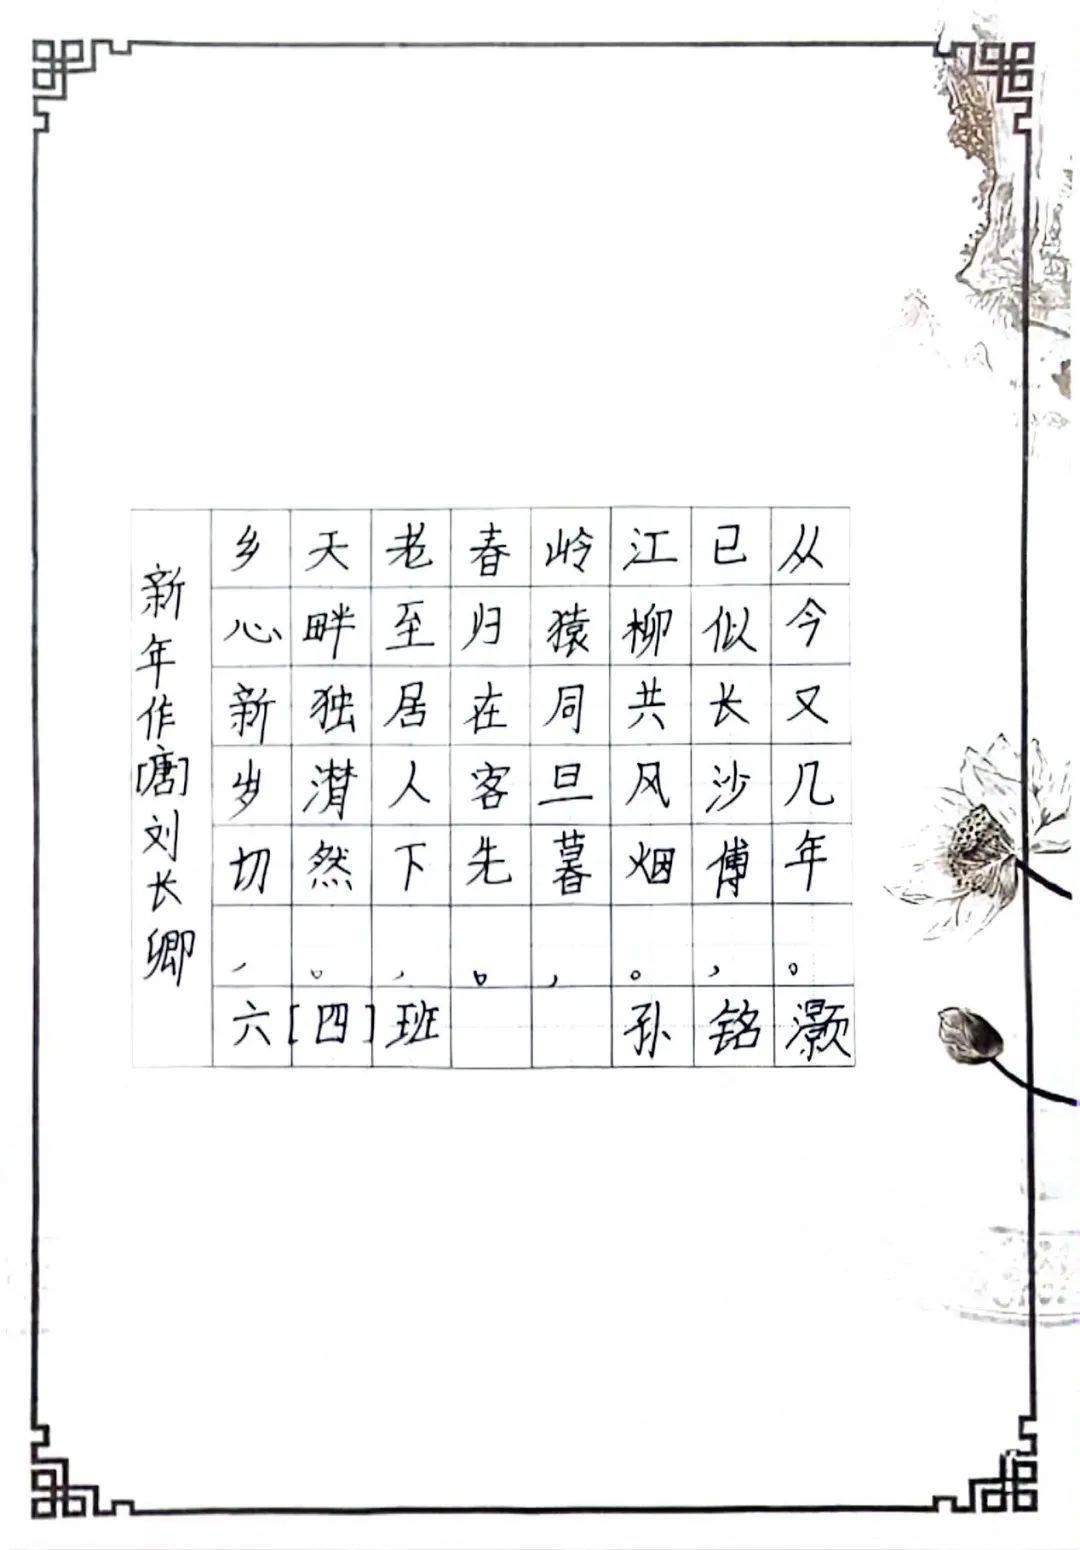 新年作[唐]刘长卿
乡心新岁切，
天畔独潸然。
老至居人下，
春归在客先。
岭猿同旦暮，
江柳共风烟。
已似长沙傅，
从今又几年。
六[四]班 孙铭灏